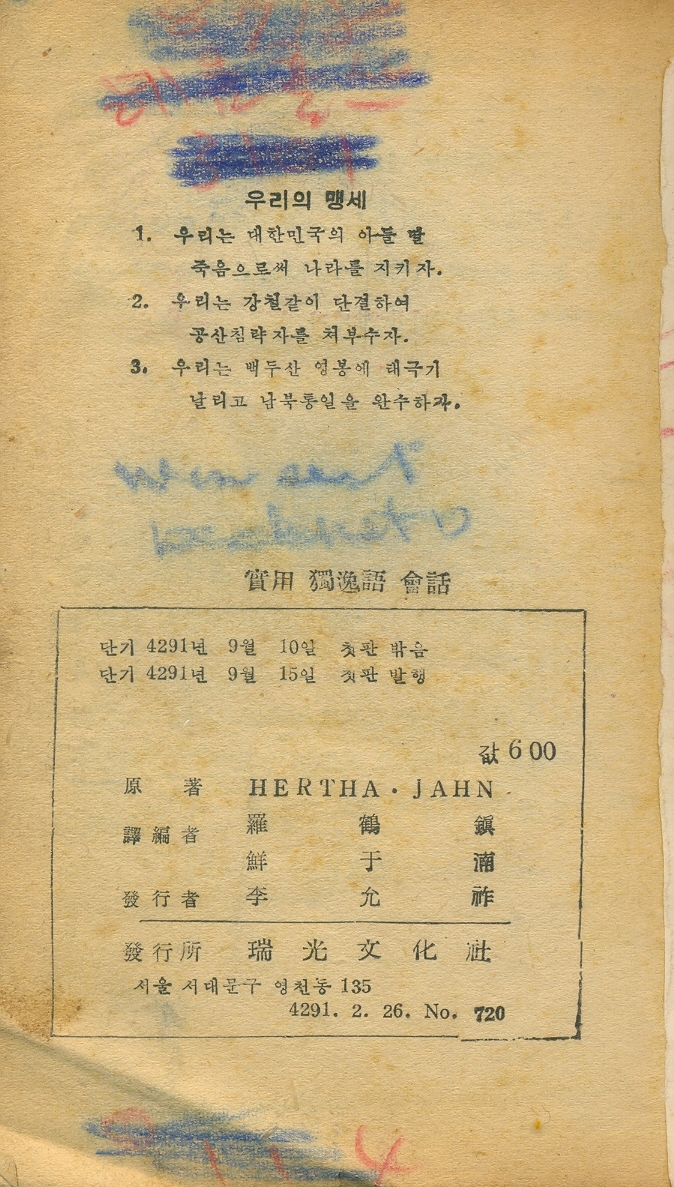 우리의 맹세
1. 우리는 대한민국의 아들 딸
죽음으로써 나라를 지키자.
2. 우리는 강철같이 단결하여
공산침략자를 쳐부수자.
3. 우리는 백두산 영봉에 태극기
날리고 남북통일을 완수하자.
實用 獨逸語 會話
단기 4291년 9월 10일 첫판 밖음
단기 4291년 9월 15일 첫판 발행
값 600
原著 HERTHA·JAHN
譯編者 羅鶴鎭
鮮于湳
發行者 李允祚
發行所 瑞光文化社
서울 서대문구 영천동 135
4291. 2. 26. No. 720